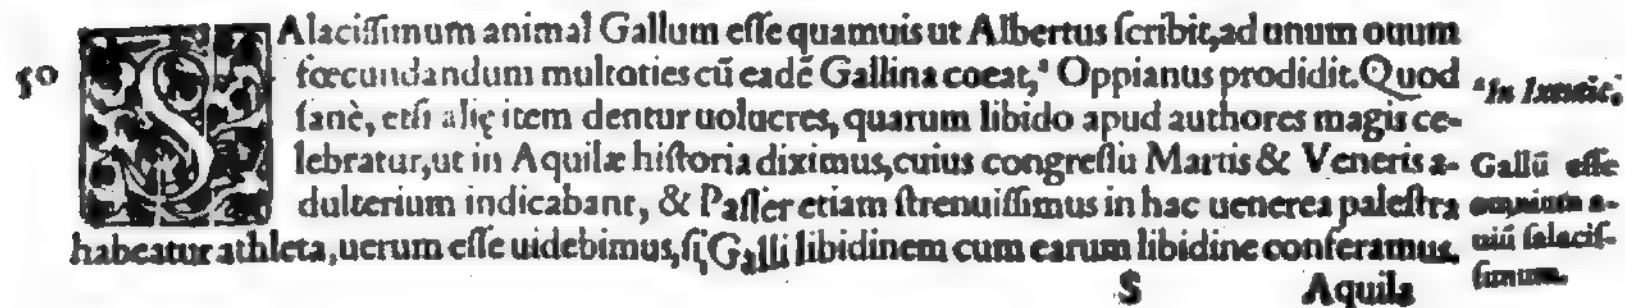 SAlaciſſimum animal Gallum eſſe quamuis ut Albertus ſcribit, ad unum ouum
50
fœcundandum multoties cū eadē Gallina coeat,ᵃ Oppianus prodidit. Quod
ᵃIn Ixeutic.
ſanè, etſi alię item dentur uolucres, quarum libido apud authores magis ce-
lebratur, ut in Aquilæ hiſtoria diximus, cuius congreſſu Martis & Veneris a-
Gallū eſſe
dulterium indicabant, & Paſſer etiam ſtrenuiſſimus in hac uenerea paleſtra
a-
habeatur athleta, uerum eſſe uidebimus, ſi Galli libidinem cum earum libidine conferamus.
uiū ſalaciſ-
ſimum.
S Aquila